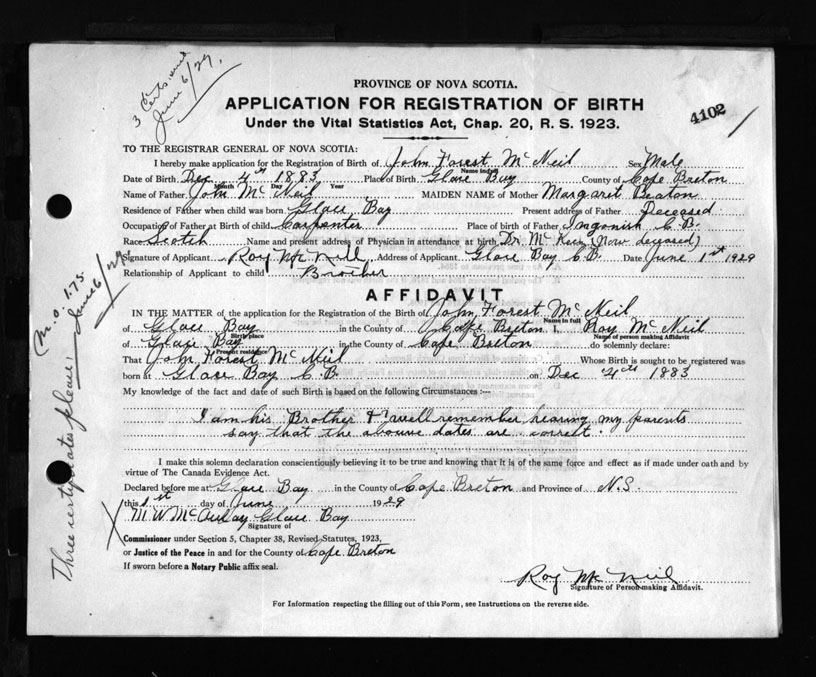 3 Certs. sent
June 6/29.
PROVINCE OF NOVA SCOTIA.
APPLICATION FOR REGISTRATION OF BIRTH
Under the Vital Statistics Act, Chap. 20, R. S. 1923.
4102
TO THE REGISTRAR GENERAL OF NOVA SCOTIA:
I hereby make application for the Registration of Birth of John Forest McNeil Sex Male
Name in full
Date of Birth Dec 4th 1883 Place of Birth Glace Bay County of Cape Breton
Month Day Year
Name of Father John McNeil MAIDEN NAME of Mother Margaret Beaton
Residence of Father when child was born Glace Bay Present address of Father Deceased
Occupation of Father at Birth of child Carpenter Place of birth of Father Ingonish C.B.
Race Scotch Name and present address of Physician in attendance at birth Dr. McKeen (Now deceased)
Signature of Applicant Roy McNeil Address of Applicant Glace Bay C.B. Date June 1st 1929
Relationship of Applicant to child Brother
AFFIDAVIT
IN THE MATTER of the application for the Registration of the Birth of John Forest McNeil
Name in full
of Glace Bay in the County of Cape Breton I, Roy McNeil
Birth place Name of person making Affidavit
of Glace Bay in the County of Cape Breton do solemnly declare:
Present residence
That John Forest McNeil Whose Birth is sought to be registered was
born at Glace Bay C.B. on Dec 4th 1883
My knowledge of the fact and date of such Birth is based on the following Circumstances :--
I am his Brother & well remember hearing my parents
say that the abouve dates are correct.
I make this solemn declaration conscientiously believing it to be true and knowing that it is of the same force and effect as if made under oath and by
virtue of The Canada Evidence Act.
Declared before me at Glace Bay in the County of Cape Breton and Province of N.S.
this 1st day of June 1929
X M W McAulay Glace Bay
Signature of
Commissioner under Section 5, Chapter 38, Revised Statutes, 1923,
or Justice of the Peace in and for the County of Cape Breton
If sworn before a Notary Public affix seal.
Roy McNeil
Signature of Person making Affidavit.
For Information respecting the filling out of this Form, see Instructions on the reverse side.
Three certificates please.
(M.O. 1.75
June 6/29